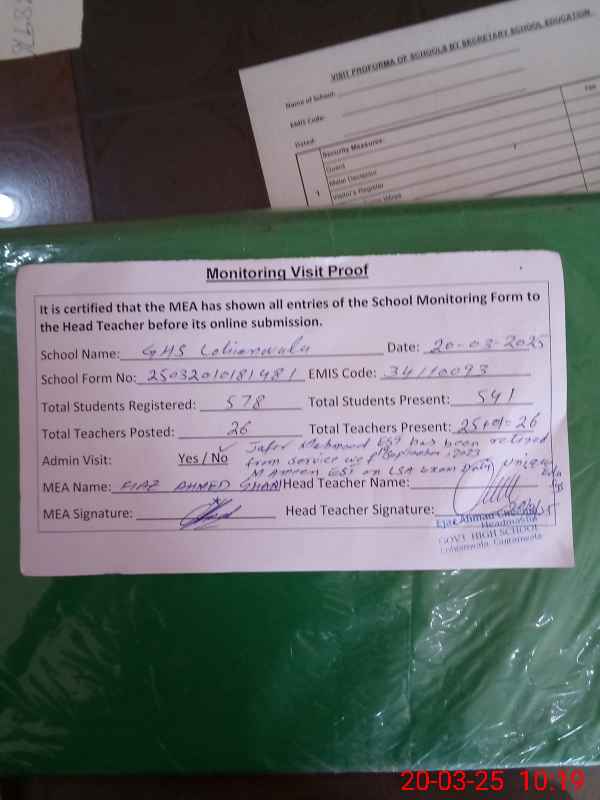 VISIT PROFORMA OF SCHOOLS BY SECRETARY SCHOOL EDUCATION
Name of School:
EMIS Code:
Dated:
Security Measures:
Guard
1
Metal Detector
Visitor's Register
Monitoring Visit Proof
It is certified that the MEA has shown all entries of the School Monitoring Form to
the Head Teacher before its online submission.
School Name: GHS Lohianwala Date: 20-03-2025
School Form No: 25032010181481 EMIS Code: 34110093
Total Students Registered: 578 Total Students Present: 541
Total Teachers Posted: 26 Total Teachers Present: 25+01=26
Jafer Mehmood EST has been retired
Admin Visit: Yes / No from service September, 2023
M Ameen EST on LSA Exam Duty
MEA Name: FIAZ AHMED GHANI Head Teacher Name:
MEA Signature: Head Teacher Signature:
Ejaz Ahmad
Headmaster
GOVT. HIGH SCHOOL
Lohianwala, Gujranwala
20-03-25 10:19